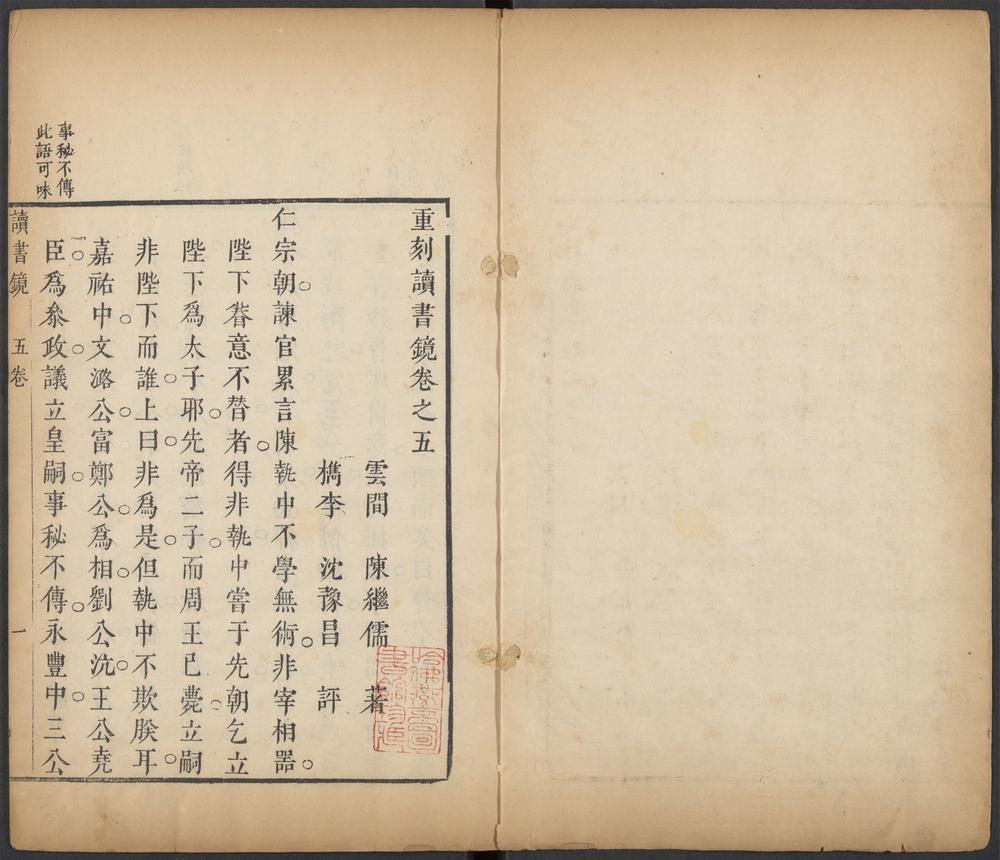 重刻讀書鏡卷之五
雲間 陳繼儒 著
檇李 沈豫昌 評
仁宗朝諫官累言陳執中不學無術非宰相器
陛下眷意不替者得非執中嘗于先朝乞立
陛下爲太子耶先帝二子而周王已薨立嗣
非陛下而誰上曰非爲是但執中不欺朕耳
嘉祐中文潞公富鄭公爲相劉公沆王公堯
臣爲叅政議立皇嗣事秘不傳永豐中三公
事秘不傳
此語可味
讀書鏡 五卷 一